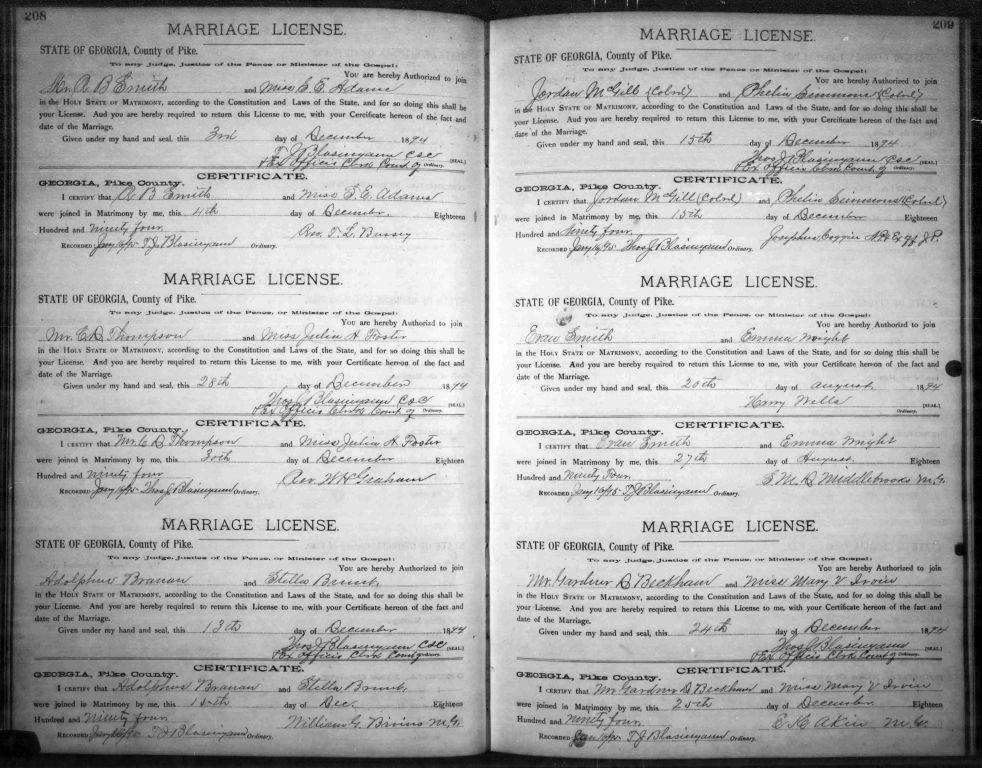 208
MARRIAGE LICENSE.
STATE OF GEORGIA, County of Pike.
To any Judge, Justice of the Peace or Minister of the Gospel:
You are hereby Authorized to join
Mr. A B Smith and Miss E. E. Adams
in the HOLY STATE OF MATRIMONY, according to the Constitution and Laws of the State, and for so doing this shall be
your License. And you are hereby required to return this License to me, with your Certificate hereon of the fact and
date of the Marriage.
Given under my hand and seal, this 3rd day of December 1894
T J Blasingame CSC [SEAL.]
& Ex Officio Clerk Court of Ordinary.
CERTIFICATE.
GEORGIA, Pike County.
I CERTIFY that A B Smith and Miss E. E. Adams
were joined in Matrimony by me, this 4th day of December. Eighteen
Hundred and Ninety four. Rev. T. L. Bussey
RECORDED T. J. Blasingame Ordinary.
MARRIAGE LICENSE.
STATE OF GEORGIA, County of Pike.
To any Judge, Justice of the Peace, or Minister of the Gospel:
You are hereby Authorized to join
Mr. C. D. Thompson and Miss Julia H. Foster
in the HOLY STATE OF MATRIMONY, according to the Constitution and Laws of the State, and for so doing this shall be
your License. And you are hereby required to return this License to me, with your Certificate hereon of the fact and
date of the Marriage.
Given under my hand and seal, this 28th day of December 1894
Thos J Blasingame CSC [SEAL.]
& Ex Officio Clerk Court of Ordinary.
CERTIFICATE.
GEORGIA, Pike County.
I CERTIFY that Mr. C. D. Thompson and Miss Julia H. Foster
were joined in Matrimony by me, this 30th day of December Eighteen
Hundred and Ninety four Rev. W H Graham
RECORDED Thos J Blasingame Ordinary.
MARRIAGE LICENSE.
STATE OF GEORGIA, County of Pike.
To any Judge, Justice of the Peace, or Minister of the Gospel:
You are hereby Authorized to join
Adolphus Branan and Stella
in the HOLY STATE OF MATRIMONY, according to the Constitution and Laws of the State, and for so doing this shall be
your License. And you are hereby required to return this License to me, with your Certificate hereon of the fact and
date of the Marriage.
Given under my hand and seal, this 13th day of December 1894
Thos J Blasingame CSC [SEAL.]
& Ex Officio Clerk Court of Ordinary.
CERTIFICATE.
GEORGIA, Pike County.
I CERTIFY that Adolphus Branan and Stella
were joined in Matrimony by me, this day of Dec. Eighteen
Hundred and Ninety four William G. Bivins M.G.
RECORDED T J Blasingame Ordinary.
209
MARRIAGE LICENSE.
STATE OF GEORGIA, County of Pike.
To any Judge, Justice of the Peace, or Minister of the Gospel:
You are hereby Authorized to join
Jordan McGill (Colrd) and Phelia Simmons (Colrd)
in the HOLY STATE OF MATRIMONY, according to the Constitution and Laws of the State, and for so doing this shall be
your License. And you are hereby required to return this License to me, with your Certificate hereon of the fact and
date of the Marriage.
Given under my hand and seal, this 15th day of December 1894
Thos J Blasingame CSC [SEAL.]
& Ex Officio Clerk Court of Ordinary.
CERTIFICATE.
GEORGIA, Pike County.
I CERTIFY that Jordan McGill (Colrd) and Phelia Simmons (Colrd)
were joined in Matrimony by me, this 15th day of December Eighteen
Hundred and Ninety four. Josephus Coggin N.P. & Ex Off J.P.
RECORDED Thos J Blasingame Ordinary.
MARRIAGE LICENSE.
STATE OF GEORGIA, County of Pike.
To any Judge, Justice of the Peace, or Minister of the Gospel:
You are hereby Authorized to join
Evan Smith and Emma Wright
in the HOLY STATE OF MATRIMONY, according to the Constitution and Laws of the State, and for so doing this shall be
your License. And you are hereby required to return this License to me, with your Certificate hereon of the fact and
date of the Marriage.
Given under my hand and seal, this 20th day of August 1894
Harry Wells [SEAL]
Ordinary.
CERTIFICATE.
GEORGIA, Pike County.
I CERTIFY that Evan Smith and Emma Wright
were joined in Matrimony by me, this 27th day of August, Eighteen
Hundred and Ninety Four. Middlebrooks M.G.
RECORDED T. J Blasingame Ordinary.
MARRIAGE LICENSE.
STATE OF GEORGIA, County of Pike.
To any Judge, Justice of the Peace, or Minister of the Gospel:
You are hereby Authorized to join
Mr. Gardner D. Beckham and Miss Mary V Irvin
in the HOLY STATE OF MATRIMONY, according to the Constitution and Laws of the State, and for so doing this shall be
your License. And you are hereby required to return this License to me, with your Certificate hereon of the fact and
date of the Marriage.
Given under my hand and seal, this 24th day of December 1894
Thos J Blasingame [SEAL]
& Ex Officio Clerk Court of Ordinary.
CERTIFICATE.
GEORGIA, Pike County.
I CERTIFY that Mr. Gardner D. Beckham and Miss Mary V Irvin
were joined in Matrimony by me, this 25th day of December. Eighteen
Hundred and Ninety four. Akin M.G.
RECORDED T. J Blasingame Ordinary.